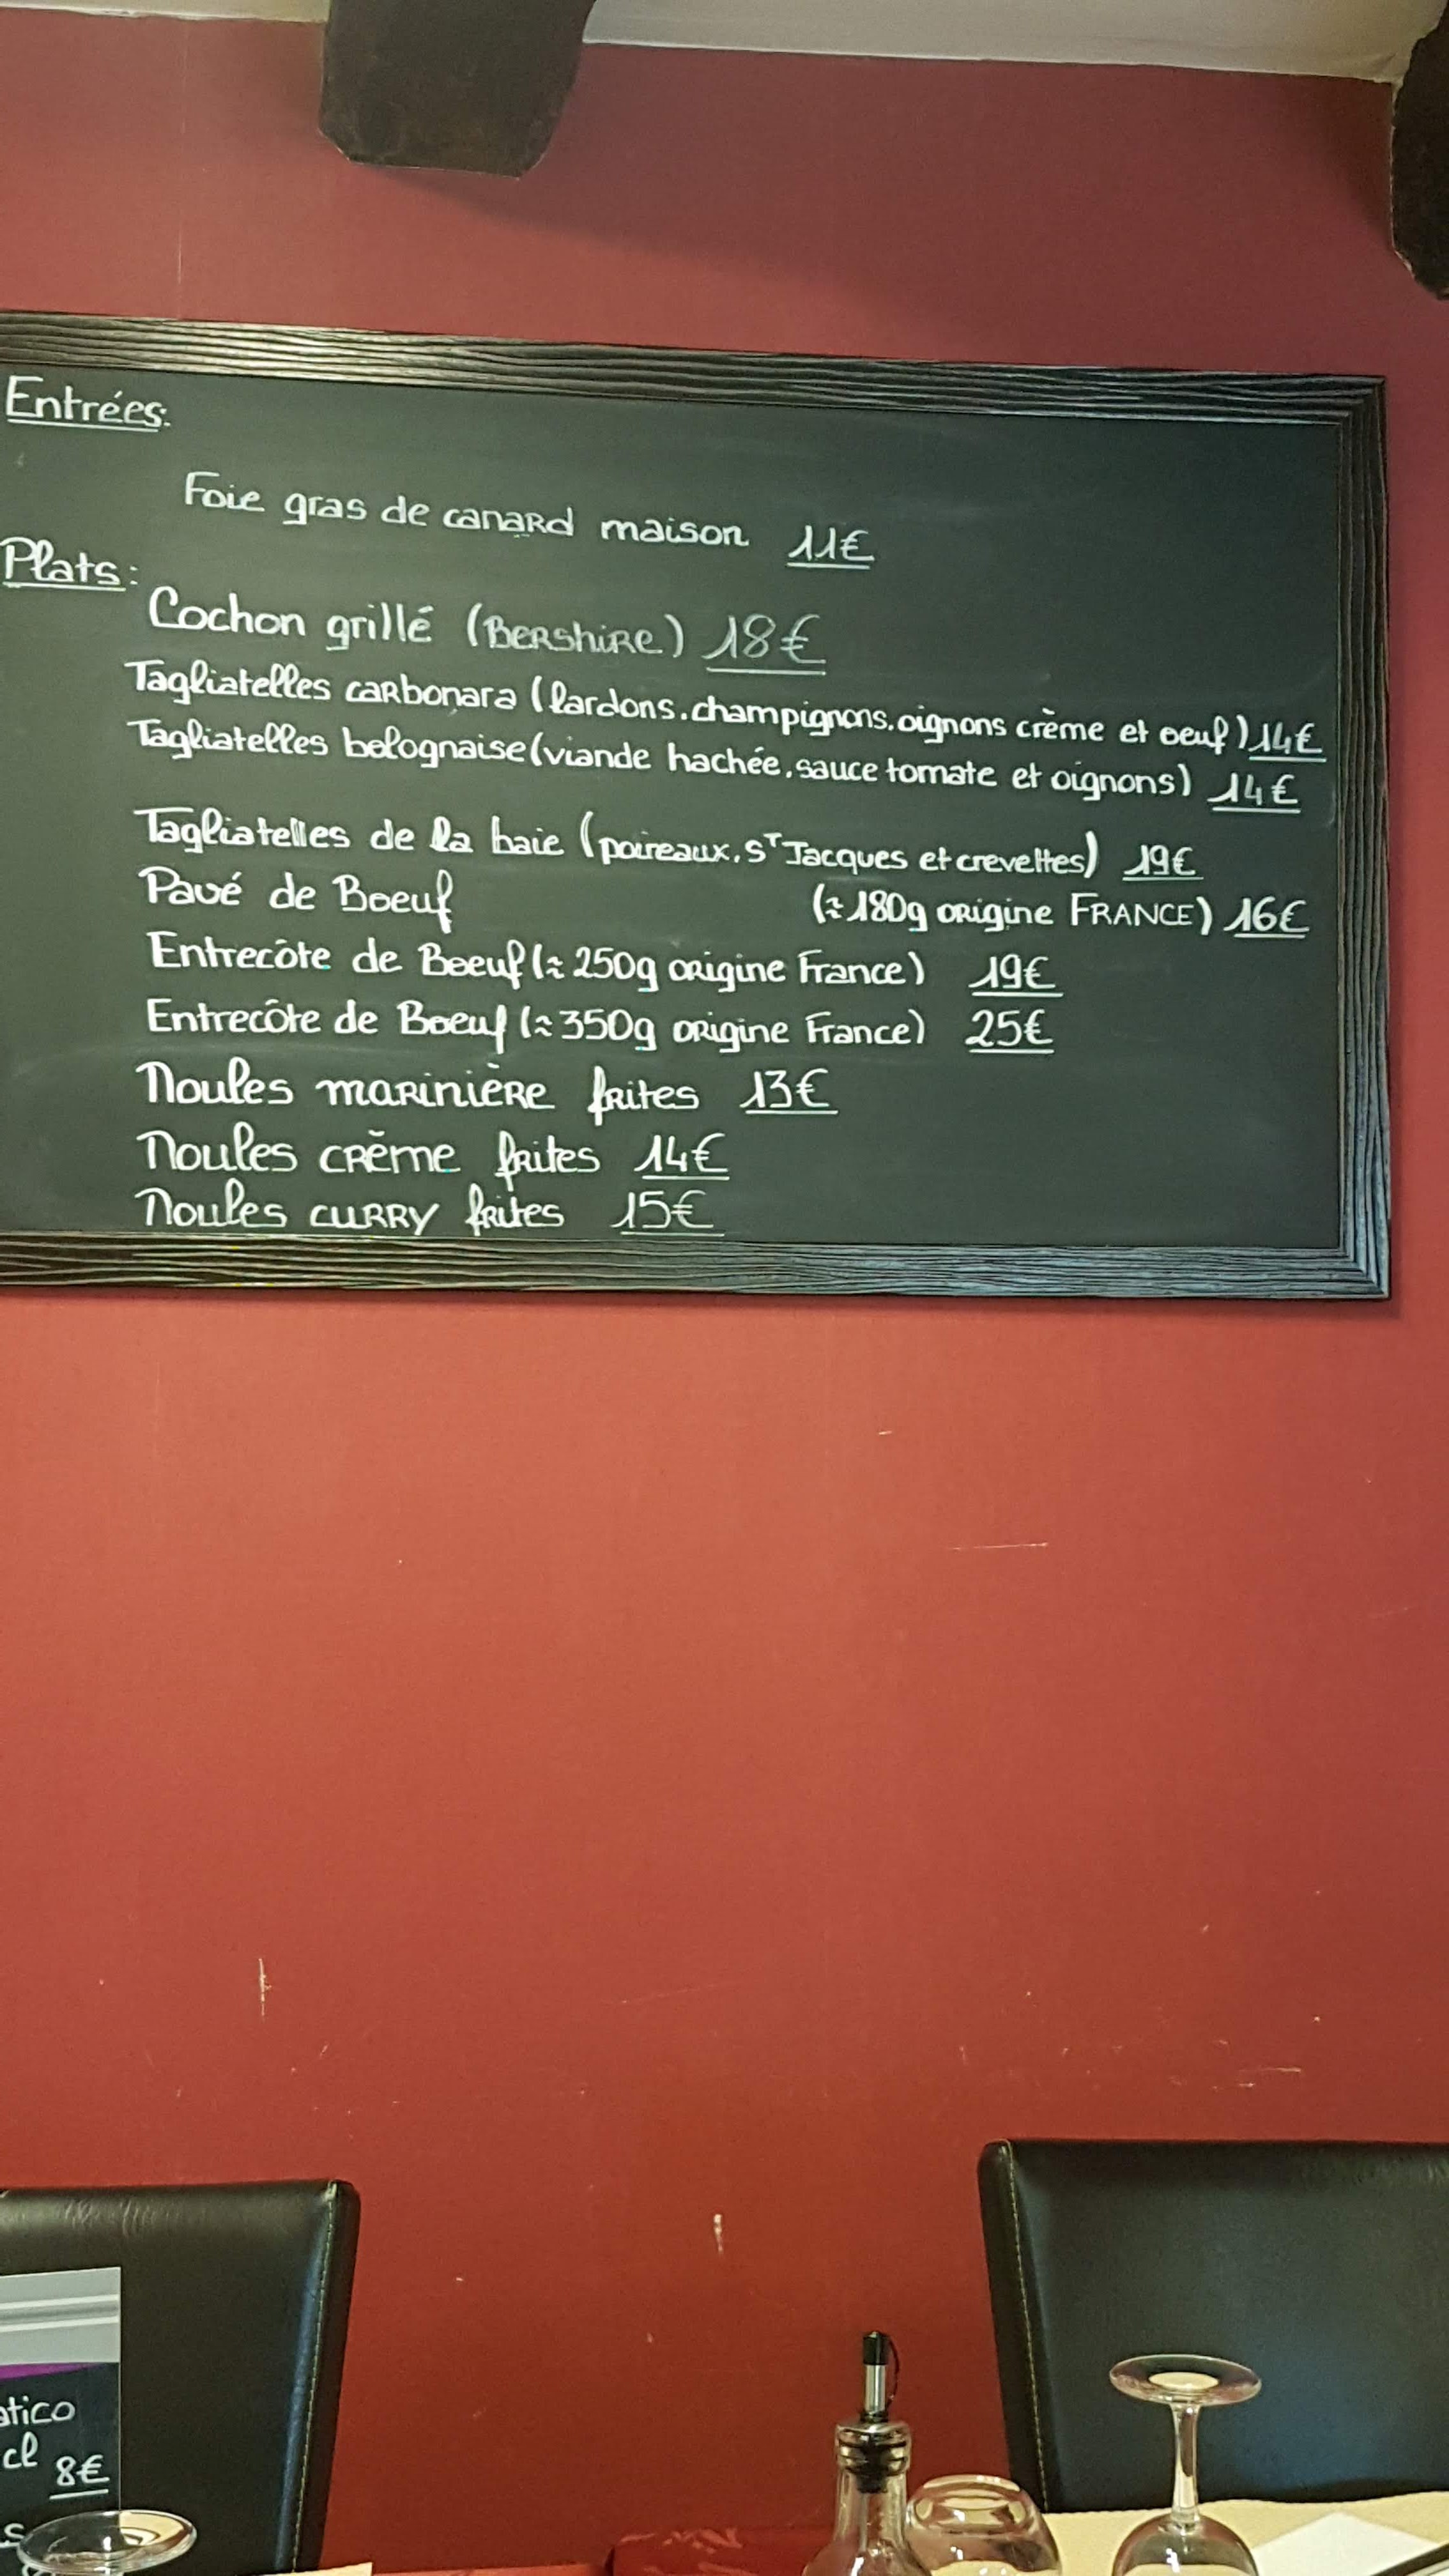 Entrées:
Foie gras de canard maison 11€
Plats:
Cochon grillé (Bershire) 18€
Tagliatelles carbonara (lardons.champignons.oignons crème et oeuf) 14€
Tagliatelles bolognaise (viande hachée.sauce tomate et oignons) 14€
Tagliatelles de la baie (poireaux.St Jacques et crevettes) 19€
Pavé de Boeuf (≈180g origine FRANCE) 16€
Entrecôte de Boeuf (≈250g origine France) 19€
Entrecôte de Boeuf (≈350g origine France) 25€
Moules marinière frites 13€
Moules crème frites 14€
Moules curry frites 15€
atico
cl 8€
s